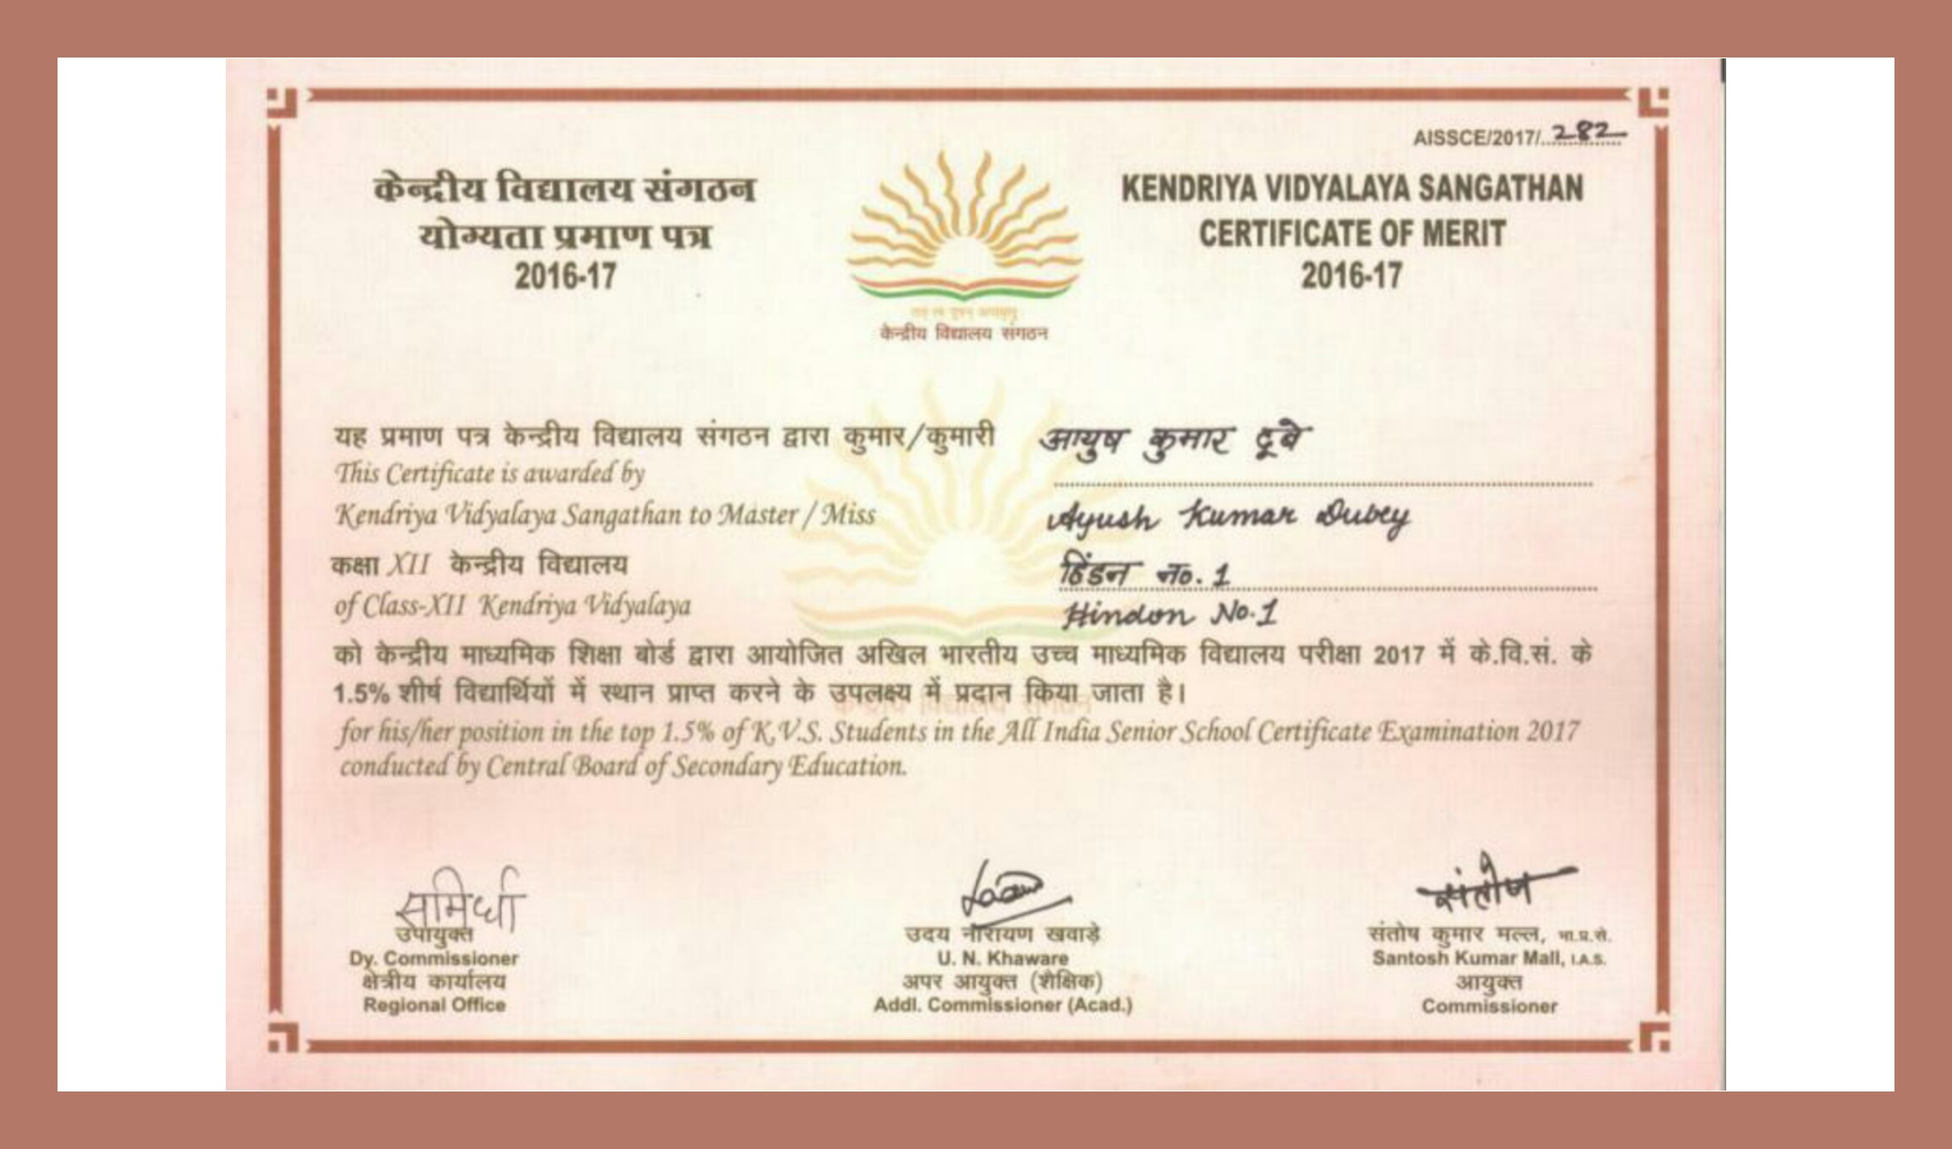 AISSCE/2017/..282
केन्द्रीय विद्यालय संगठन
योग्यता प्रमाण पत्र
2016-17
केन्द्रीय विद्यालय संगठन
KENDRIYA VIDYALAYA SANGATHAN
CERTIFICATE OF MERIT
2016-17
यह प्रमाण पत्र केन्द्रीय विद्यालय संगठन द्वारा कुमार/कुमारी आयुष कुमार दूबे
This Certificate is awarded by
Kendriya Vidyalaya Sangathan to Master / Miss Ayush Kumar Dubey
कक्षा XII केन्द्रीय विद्यालय हिंडन नं. 1
of Class-XII Kendriya Vidyalaya Hindon No.1
को केन्द्रीय माध्यमिक शिक्षा बोर्ड द्वारा आयोजित अखिल भारतीय उच्च माध्यमिक विद्यालय परीक्षा 2017 में के.वि.सं. के
1.5% शीर्ष विद्यार्थियों में स्थान प्राप्त करने के उपलक्ष्य में प्रदान किया जाता है।
for his/her position in the top 1.5% of K.V.S. Students in the All India Senior School Certificate Examination 2017
conducted by Central Board of Secondary Education.
उपायुक्त
Dy. Commissioner
क्षेत्रीय कार्यालय
Regional Office
उदय नारायण खवाड़े
U. N. Khaware
अपर आयुक्त (शैक्षिक)
Addl. Commissioner (Acad.)
संतोष
संतोष कुमार मल्ल, भा.प्र.से.
Santosh Kumar Mall, I.A.S.
आयुक्त
Commissioner